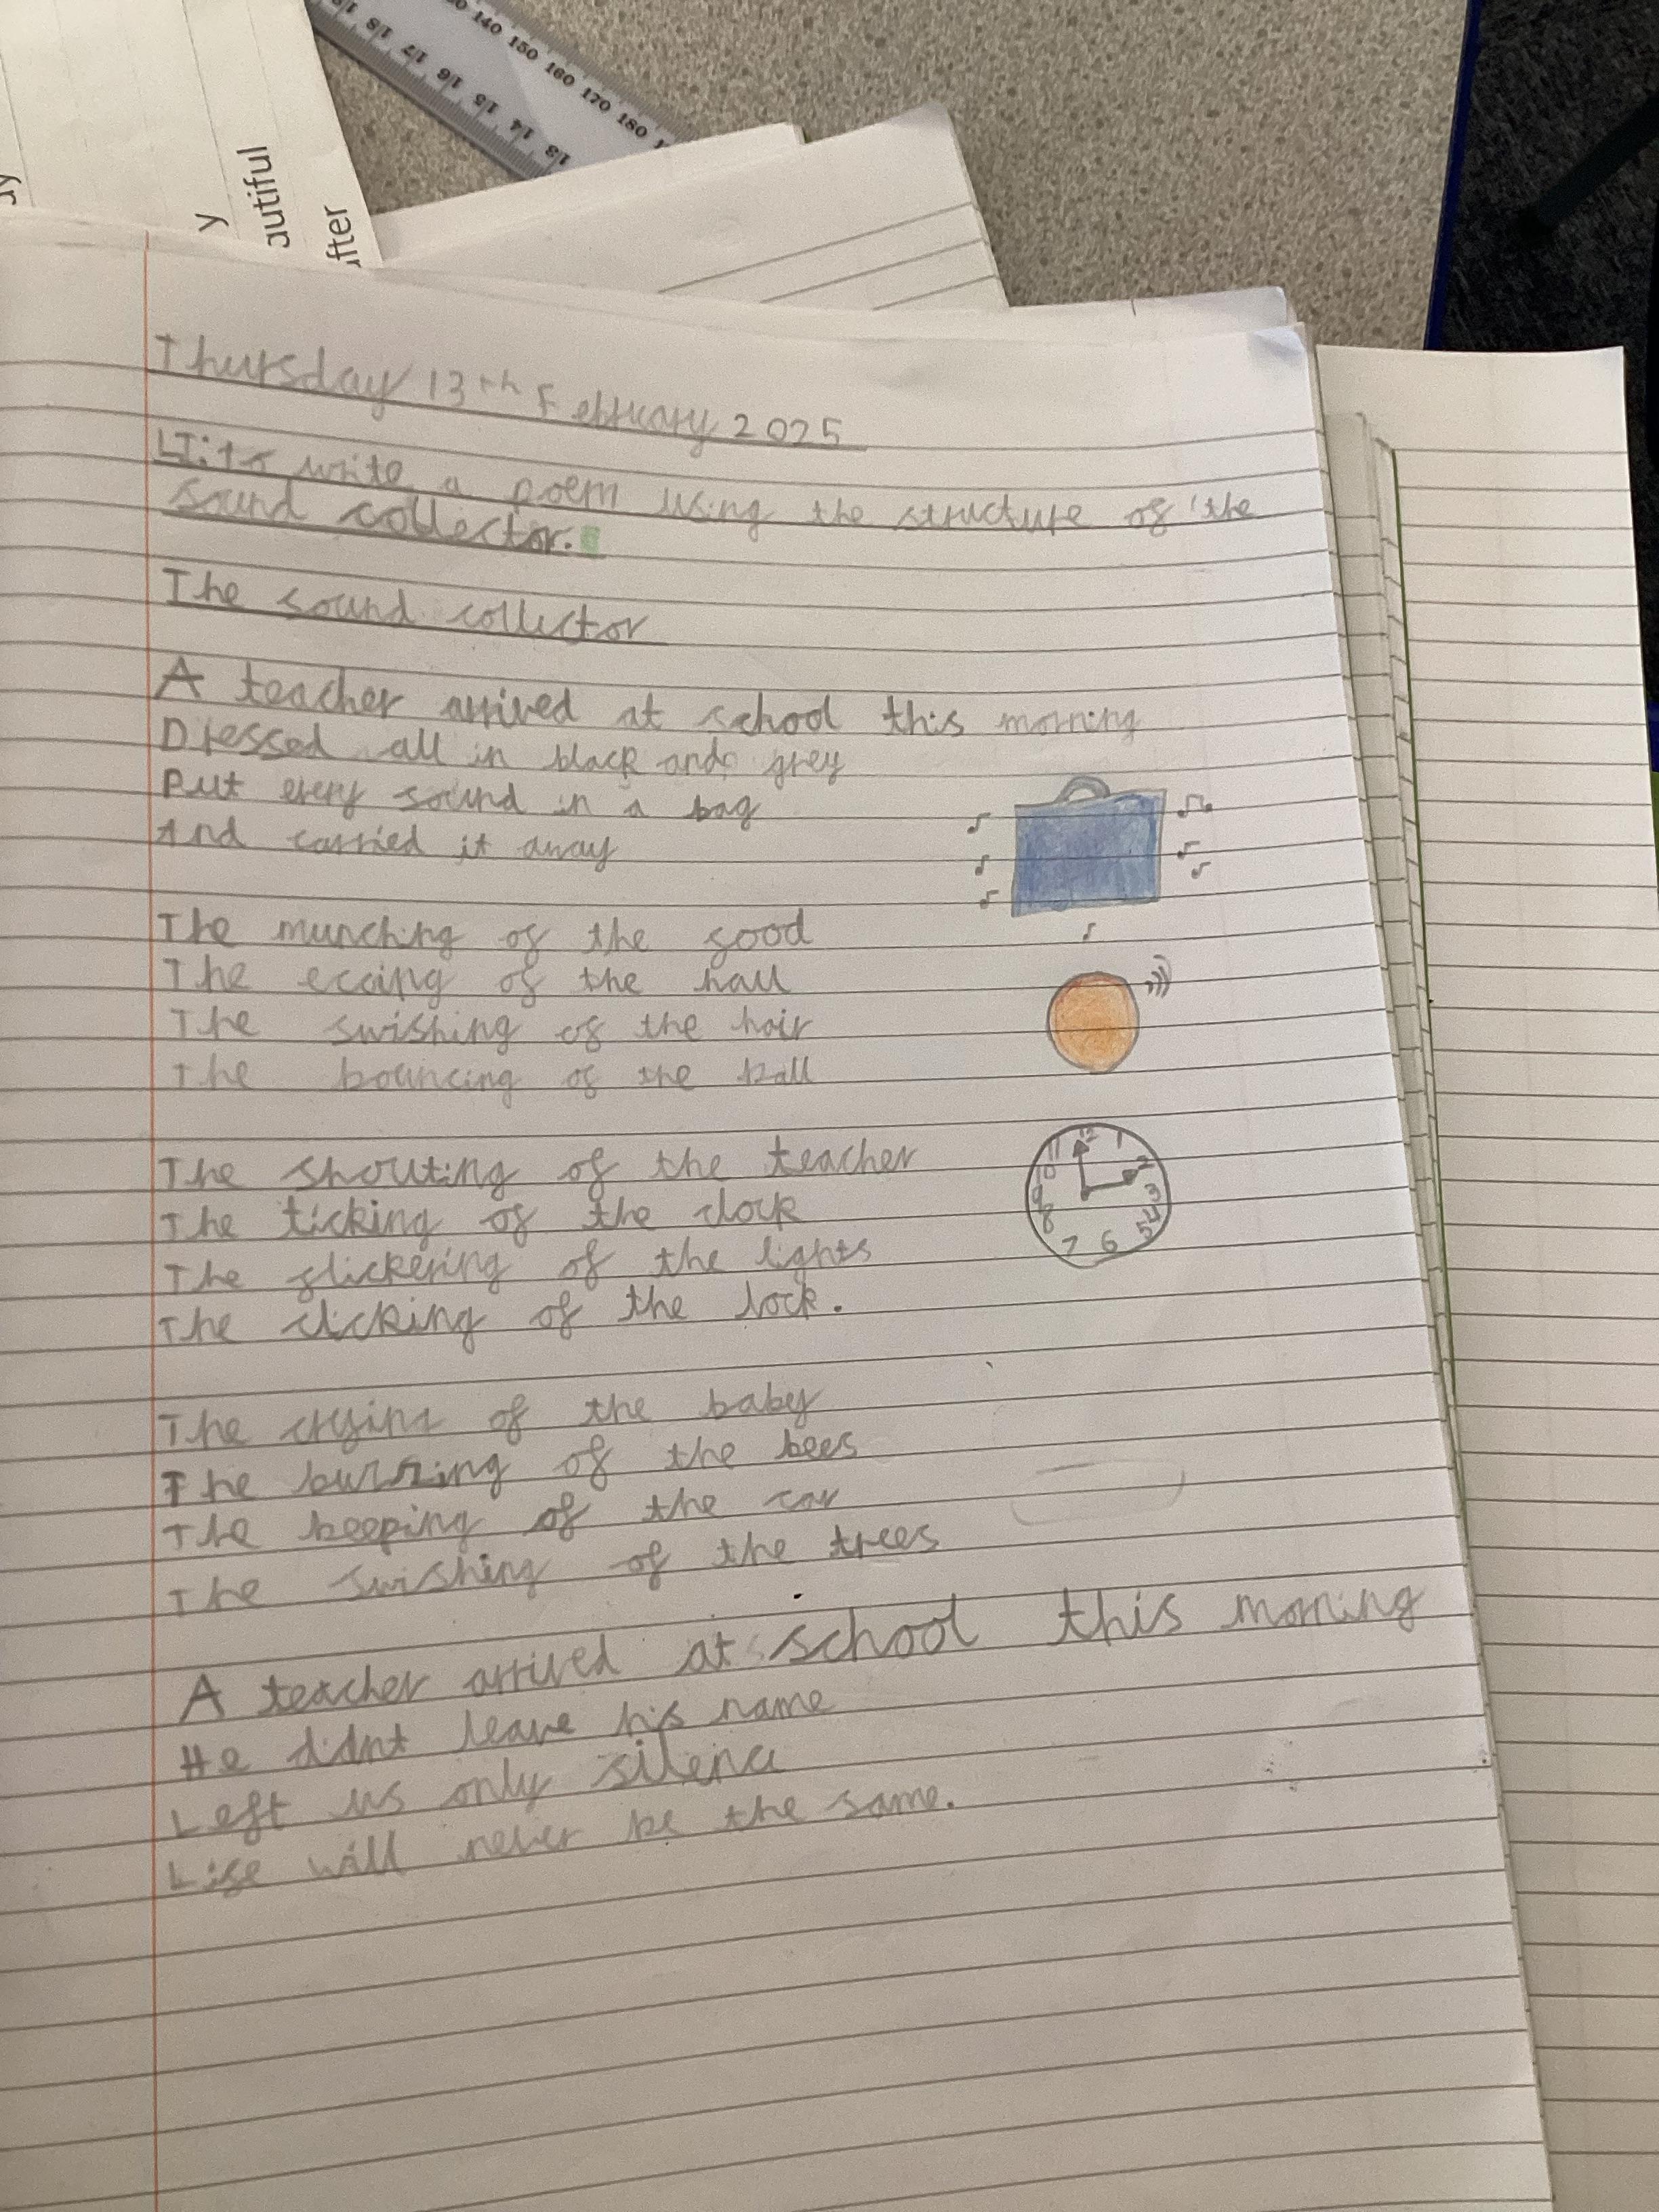 y
autiful
after
140 150 160 170 180
19 18 17 16 15 14 13
Thursday 13th February 2025
LI: to write a poem using the structure of 'the
sound collector.
The sound collector
A teacher arrived at school this morning
Dressed all in black and grey
Put every sound in a bag
And carried it away
The munching of the food
The ecoing of the hall
The swishing of the hair
The bouncing of the ball
12 1 2 3 4 5 6 7 8 9 10 11
The shouting of the teacher
The ticking of the clock
The flickering of the lights
The clicking of the lock.
The crying of the baby
The buzzing of the bees
The beeping of the car
The swishing of the trees
A teacher arrived at school this morning
He didnt leave his name
Left us only silence
Life will never be the same.